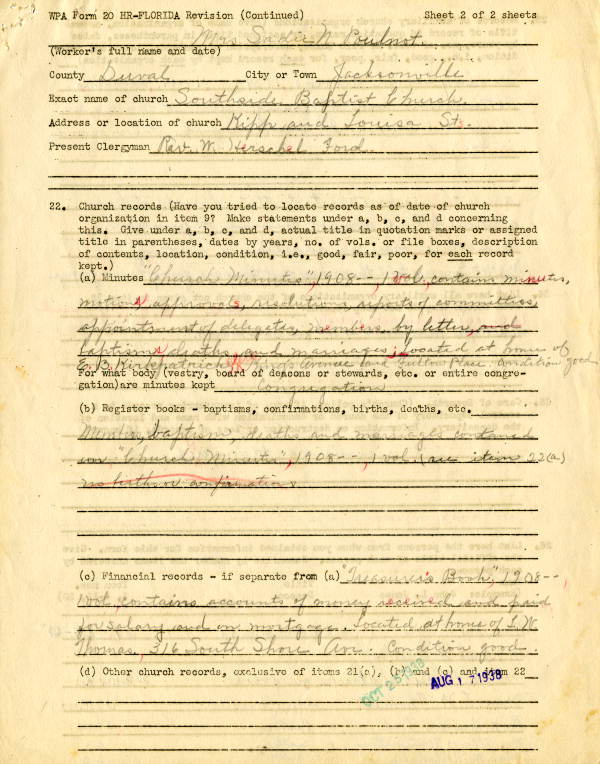 WPA Form 20 HR-FLORIDA Revision (Continued) Sheet 2 of 2 sheets
Mrs Sadie N Poulnot.
(Worker's full name and date)
County Duval City or Town Jacksonville
Exact name of church Southside Baptist Church.
Address or location of church Kipp and Louisa Sts.
Present Clergyman Rev. W. Herschel Ford.
22. Church records (Have you tried to locate records as of date of church
organization in item 9? Make statements under a, b, c, and d concerning
this. Give under a, b, c, and d, actual title in quotation marks or assigned
title in parentheses, dates by years, no. of vols. or file boxes, description
of contents, location, condition, i.e., good, fair, poor, for each record
kept.)
(a) Minutes "Church Minutes", 1908--, 1 vol., contain minutes,
motions approvals, resolutions, reports of committees,
appointment of delegates, members by letter, and
baptisms, deaths, and marriages; located at home of
E. B. Kirkpatrick Avenue and Place. Condition good
For what body (vestry, board of deacons or stewards, etc. or entire congre-
gation) are minutes kept Congregation
(b) Register books - baptisms, confirmations, births, deaths, etc.
Members, baptism, deaths and marriages contained
in "Church Minutes", 1908--, 1 vol. (see item 22(a)
no births or confirmations.
(c) Financial records - if separate from (a) "Treasurer's Book", 1908--
1 vol., contains accounts of money received and paid
for salary and on mortgage. Located at home of L. W.
Thomas, 316 South Shore Ave. Condition good.
(d) Other church records, exclusive of items 21(a), (b) and (c) and item 22
OCT 25 1938
AUG 17 1938